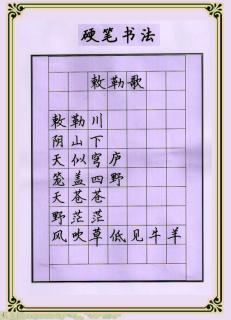 硬笔书法
敕勒歌
敕勒川
阴山下
天似穹庐
笼盖四野
天苍苍
野茫茫
风吹草低见牛羊